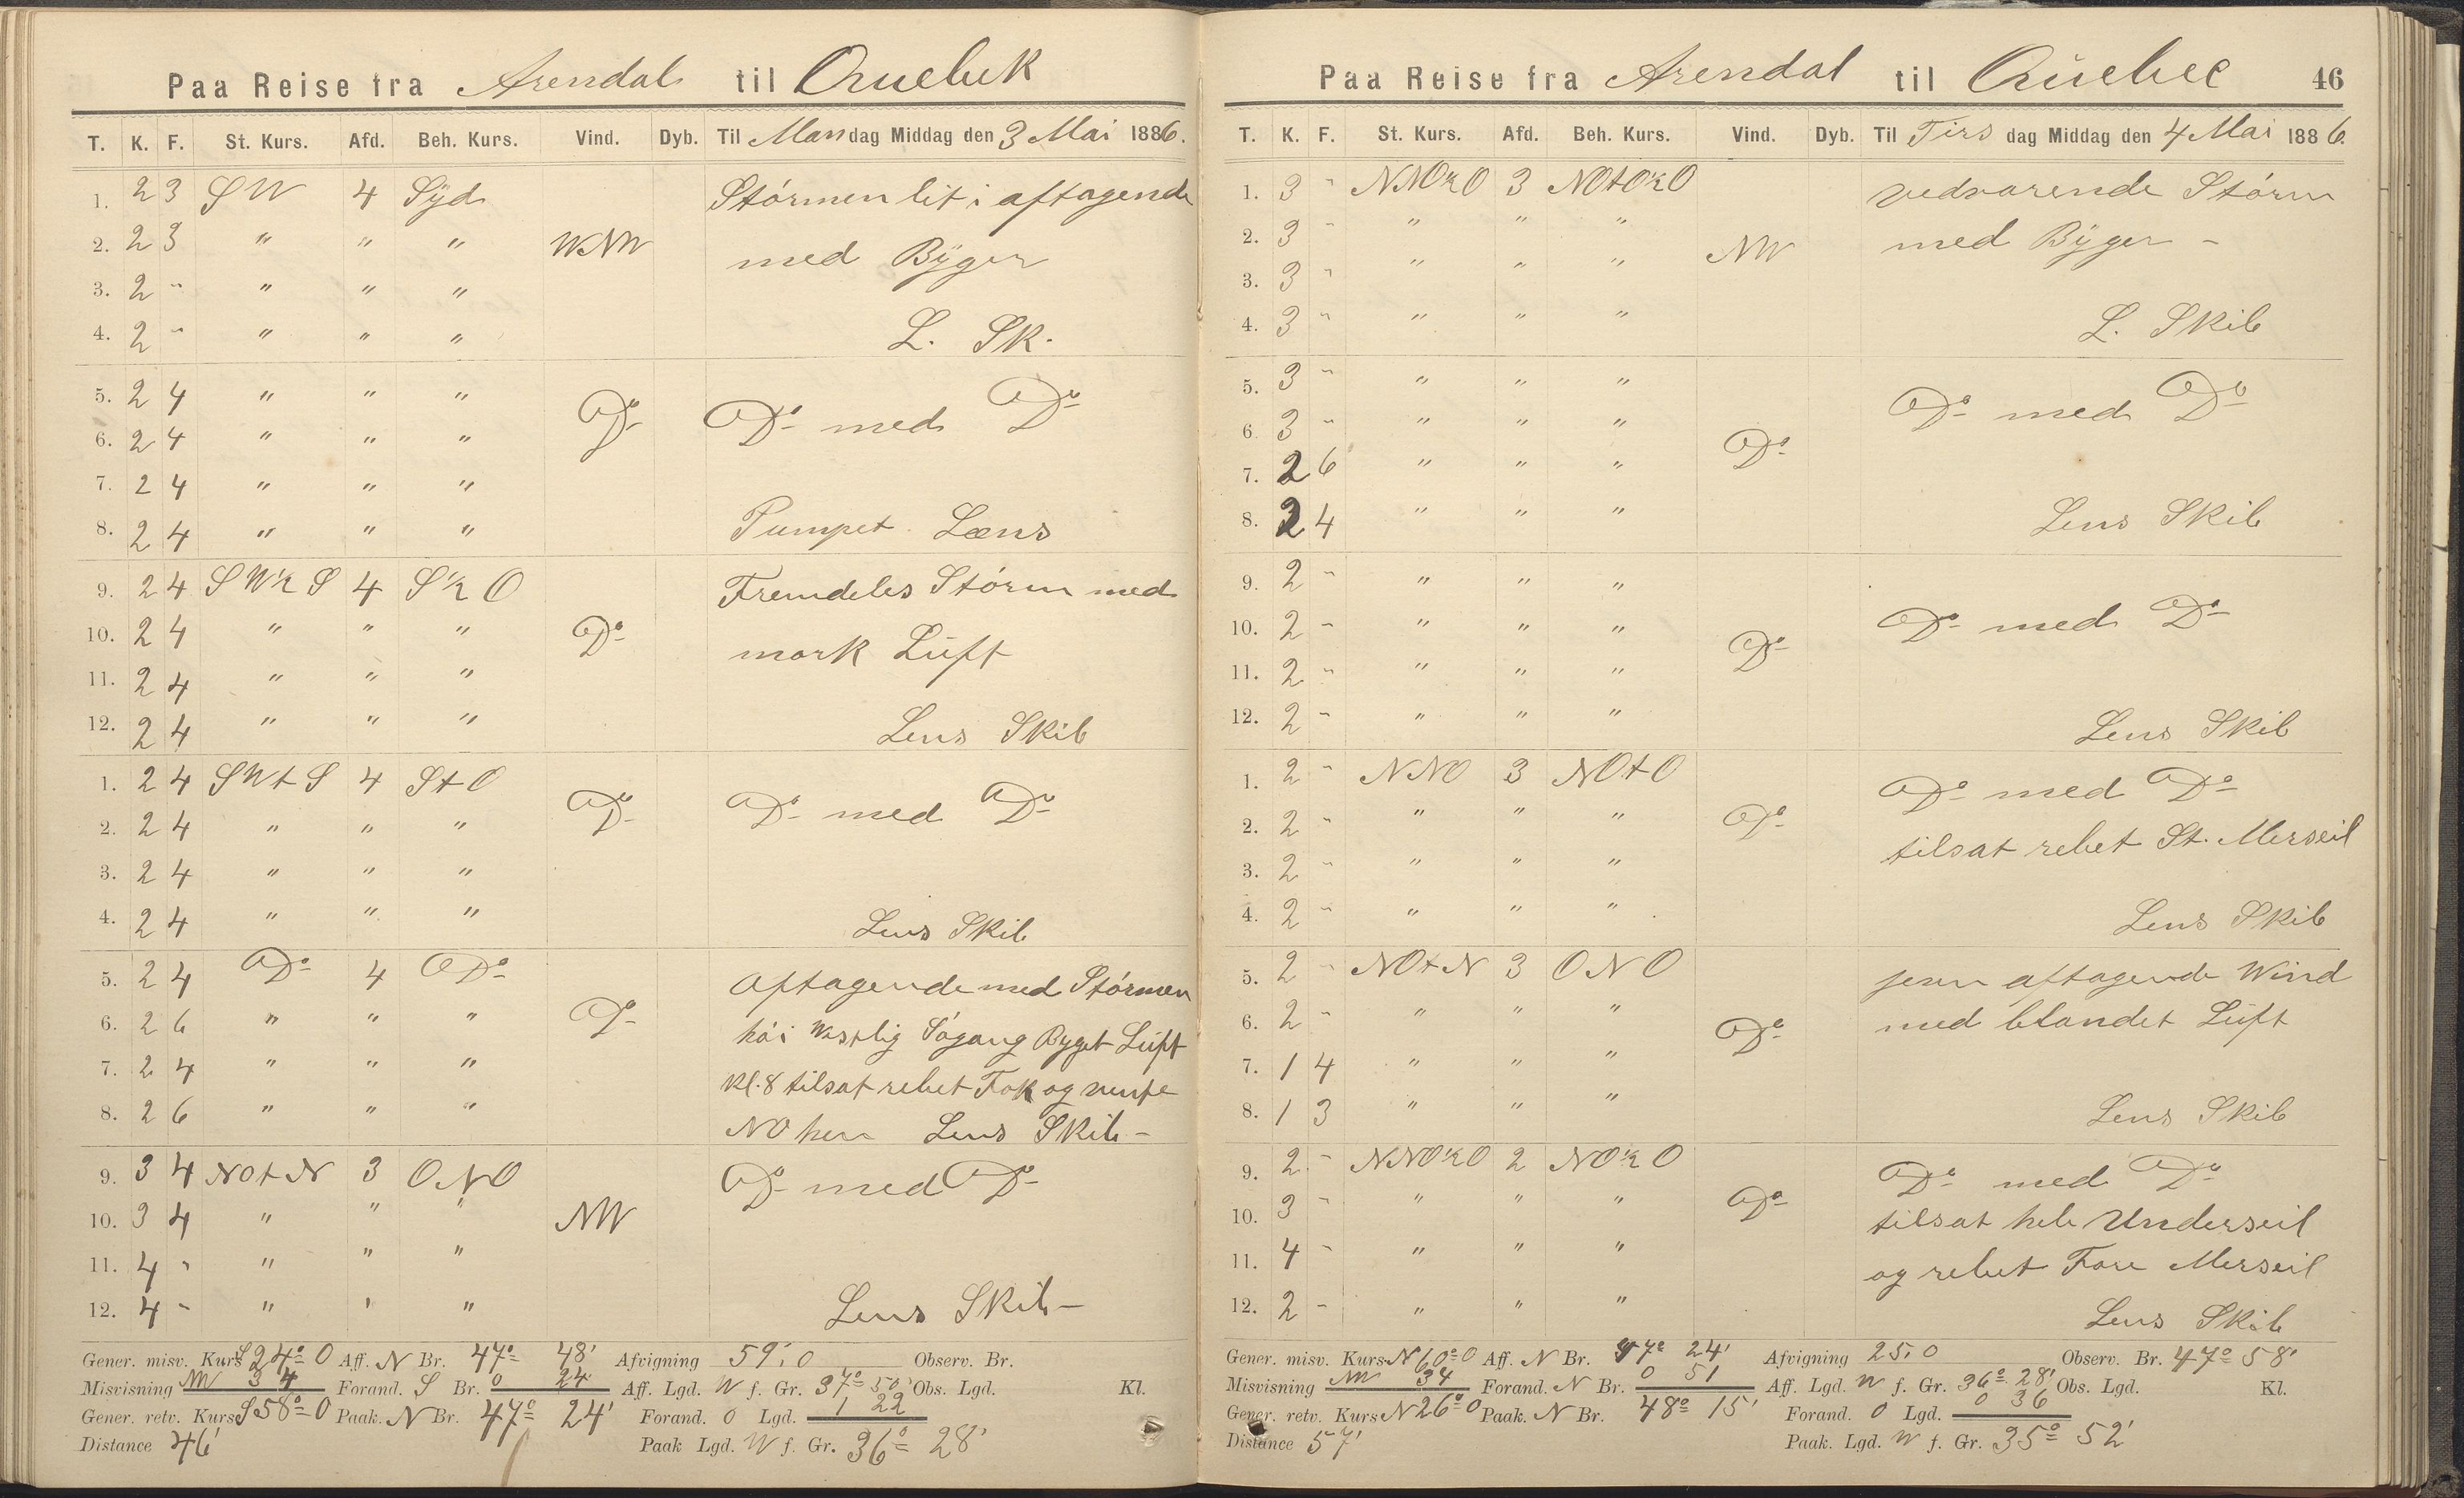 Paa Reise fra Arendal til Quebek
T. K. F. St. Kurs. Afd. Beh. Kurs. Vind. Dyb. Til Mandag Middag den 3 Mai 1886.
1. 2 3 SW 4 Syd Stórmen lit i aftagende
2. 2 3 " " " WNW med Byger
3. 2 " " " "
4. 2 " " " " L. Sk.
5. 2 4 " " "
6. 2 4 " " " Do Do med Do
7. 2 4 " " "
8. 2 4 " " " Pumpet Læns
9. 2 4 SW½S 4 S½O Fremdeles Stórm med
10. 2 4 " " " Do mork Luft
11. 2 4 " " "
12. 2 4 " " " Lens Skib
1. 2 4 SWtS 4 StO Do Do med Do
2. 2 4 " " "
3. 2 4 " " "
4. 2 4 " " " Lens Skib
5. 2 4 Do 4 Do Aftagende med Stórmen
6. 2 6 " " " Do hói Westlig Sógang Byget Luft
7. 2 4 " " " Kl. 8 tilsat rebet Fok og
8. 2 6 " " " NO Lens Skib -
9. 3 4 NOtN 3 ONO Do med Do
10. 3 4 " " " NW
11. 4 " " " "
12. 4 - " " " Lens Skib -
Gener. misv. Kurs S 24° O Aff. N Br. 47° 48' Afvigning 59,0 Observ. Br.
Misvisning NW 34 Forand. S Br. 0 24 Aff. Lgd. W f. Gr. 37° 50' Obs. Lgd. Kl.
Gener. retv. Kurs S 58° O Paak. N Br. 47° 24' Forand. O Lgd. 1 22
Distance 46' Paak Lgd. W f. Gr. 36° 28'
Paa Reise fra Arendal til Quebec 46
T. K. F. St. Kurs. Afd. Beh. Kurs. Vind. Dyb. Til Tirsdag Middag den 4 Mai 1886.
1. 3 " NNO½O 3 NOtO½O vedvarende Stórm
2. 3 " " " " NW med Byger -
3. 3 " " " "
4. 3 " " " " L. Skib
5. 3 " " " " Do med Do
6. 3 " " " " Do
7. 2 6 " " "
8. 2 4 " " " Lens Skib
9. 2 " " " "
10. 2 " " " " Do Do med Do
11. 2 " " " "
12. 2 " " " " Lens Skib
1. 2 " NNO 3 NOtO Do med Do
2. 2 " " " " Do tilsat rebet St. Merseil
3. 2 " " " "
4. 2 " " " " Lens Skib
5. 2 " NOtN 3 ONO jevn aftagende Wind
6. 2 " " " " Do med blandet Luft
7. 1 4 " " "
8. 1 3 " " " Lens Skib
9. 2 " NNO½O 2 NO½O Do med Do
10. 3 " " " " Do tilsat hele Underseil
11. 4 " " " " og rebet Fore Merseil
12. 2 - " " " Lens Skib
Gener. misv. Kurs N 60° O Aff. N Br. 47° 24' Afvigning 25,0 Observ. Br. 47° 58'
Misvisning NW 34 Forand. N Br. 0 51 Aff. Lgd. W f. Gr. 36° 28' Obs. Lgd. Kl.
Gener. retv. Kurs N 26° O Paak. N Br. 48° 15' Forand. O Lgd. 0 36
Distance 57' Paak. Lgd. W f. Gr. 35° 52'